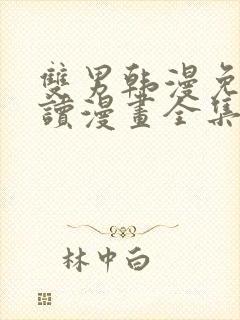 雙男韩漫免
讀漫畫全集
林中白